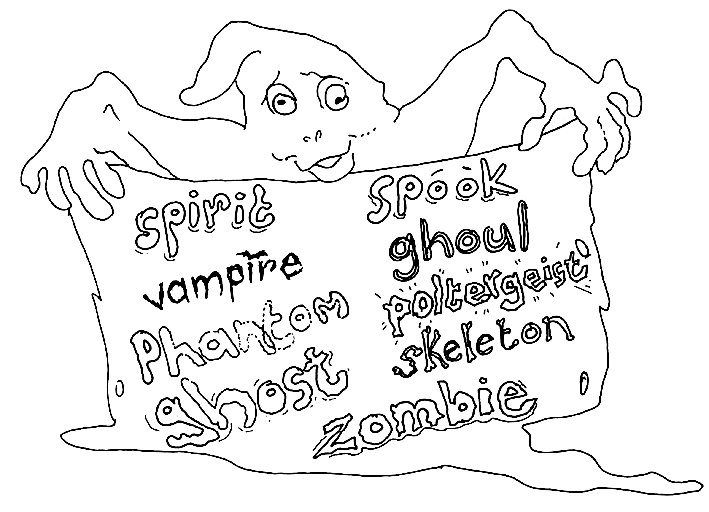 spirit
vampire
phantom
ghost
spook
ghoul
poltergeist
skeleton
zombie